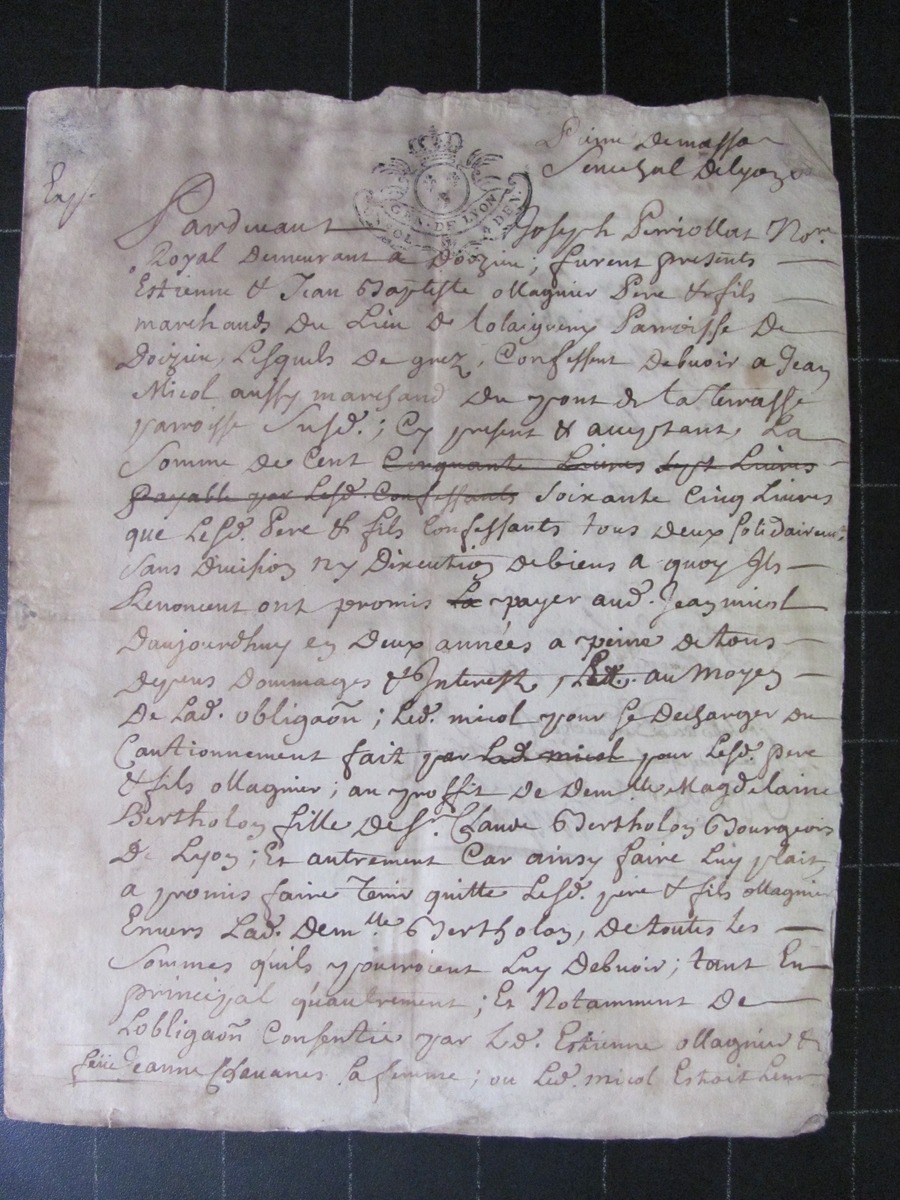 Senechal Delyon
Exp.
GEN. DE LYON
DEN.
Pardevant Joseph Perriollat Nore.
Royal Demeurant a Doizieu; furent presents
Estienne & Jean Baptiste Magnier Pere & fils
marchands Du Lieu De Parroisse De
Doizieu, Lesquels De grez, Confessent Debvoir a Jean
Micol aussy marchand du pont de la Terrasse
parroisse Susd.; Cy present & acceptant, La
Somme de Cent Cinquante Livres Sept Livres
payable par Lesd. Confessants Soixante Cinq Livres
que Lesd. Pere & fils Confessants tous deux Solidairemt.
Sans Division ny Discution de biens a quoy Ils
Renoncent ont promis La payer aud. Jean micol
Daujourdhuy en Deux années a peine de tous
depens Dommages & Interest, au Moyen
De Lad. obligaoñ; Led. micol pour Se Descharger du
Cautionnement fait par Led. micol pour Lesd. pere
& fils Magnier; au proffit De Demlle. Magdelaine
Bertholon fille de Sr. Claude Bertholon Bourgeois
De Lyon; Et autrement Car ainsy faire Luy plait,
a promis faire Tenir quitte Lesd. pere & fils Magnier
Envers Lad. Demlle. Bertholon, De toutes Les
Sommes quils pouroient Luy Debvoir; tant En
principal qu'autrement; Et Notamment De
Lobligaoñ Consentie par Led. Estienne Magnier &
feüe Jeanne Chavanes Sa femme; ou Led. micol Estoit Leur